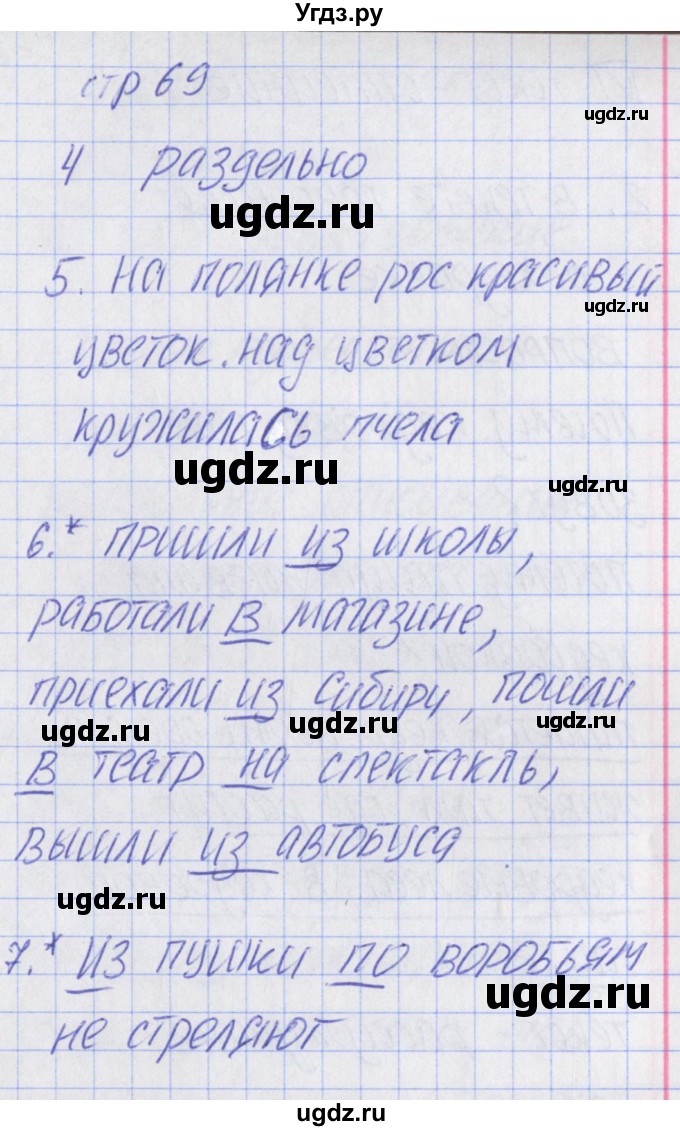 Угдз.ру
стр 69
ugdz.ru
4 раздельно
ugdz.ru
5. на полянке рос красивый
ugdz.ru
цветок. над цветком
кружилась пчела
ugdz.ru
ugdz.ru
6.* пришли из школы,
работали в магазине,
приехали из Сибири, пошли
ugdz.ru ugdz.ru ugdz.ru
в театр на спектакль,
вышли из автобуса
ugdz.ru
7.* Из пушки по воробьям
ugdz.ru
не стреляют
ugdz.ru